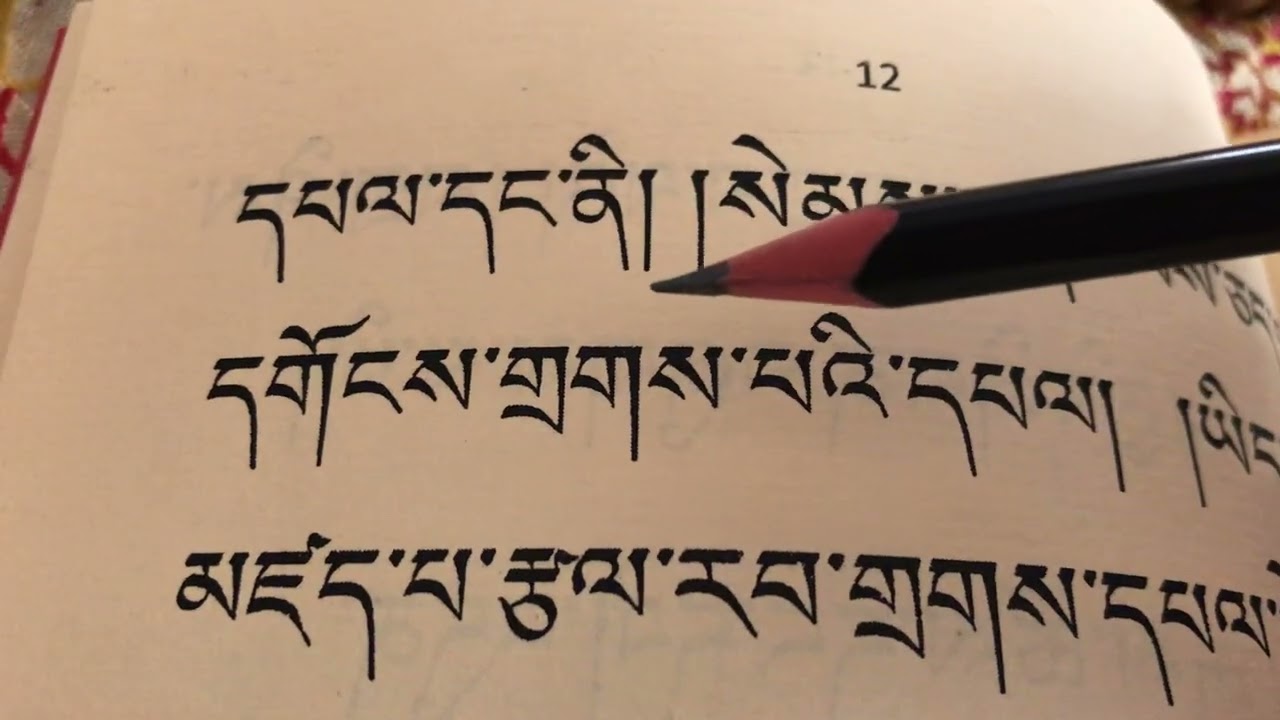 12
དཔལ་དང་ནི། །
དགོངས་གྲགས་པའི་དཔལ། །ཡིད
མཛད་པ་རྩལ་རབ་གྲགས་དཔལ་